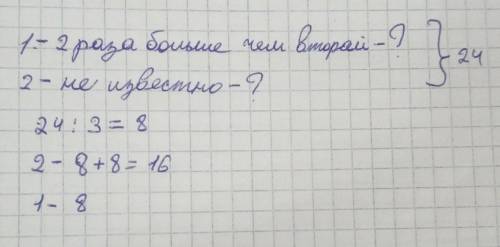 1 - 2 раза больше чем вторай - ? } 24
2 - не известно - ?
24 : 3 = 8
2 - 8 + 8 = 16
1 - 8